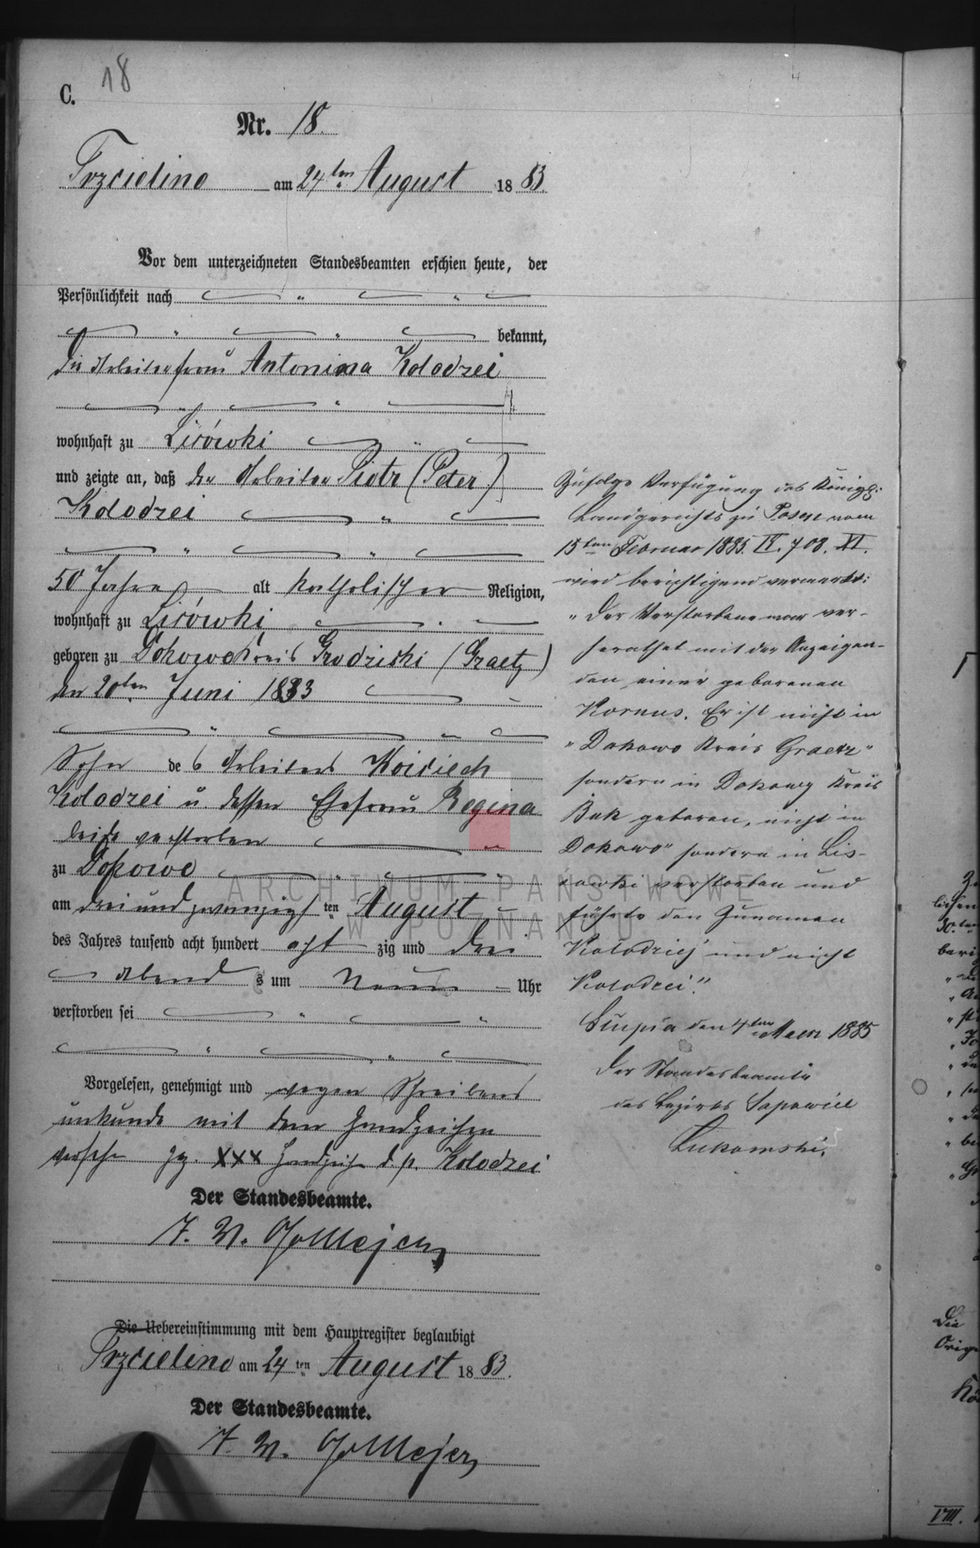 C. 18
Nr. 18.
Trzcielino am 24ten August 1883
Vor dem unterzeichneten Standesbeamten erschien heute, der
Persönlichkeit nach
bekannt,
die Arbeiterfrau Antonina Kolodzei
wohnhaft zu Lisówki
und zeigte an, daß der Arbeiter Piotr (Peter)
Kolodzei
50 Jahre alt katholischer Religion,
wohnhaft zu Lisówki
geboren zu Dokowo Kreis Grodziski (Graetz)
den 20ten Juni 1833
Sohn des Arbeiters Woiciech
Kolodzei u. dessen Ehefrau Regina
beide verstorben
zu Dokowo
am drei und zwanzigsten August
des Jahres tausend acht hundert achtzig und drei
Abends um Neun Uhr
verstorben sei
Vorgelesen, genehmigt und wegen Schreibens
unkunde mit dem Handzeichen
versehen gz. XXX Handzeichen d. p. Kolodzei
Der Standesbeamte.
Die Uebereinstimmung mit dem Hauptregister beglaubigt
Trzcielino am 24ten August 1883.
Der Standesbeamte.
Zufolge Verfügung des Königl.
Landgerichts zu Posen vom
15ten Februar 1885 708. XI.
wird berichtigend vermerkt:
"Der Verstorbene war ver-
heirathet mit der Anzeigen-
den, einer geborenen
Kornus. Er ist nicht in
"Dokowo Kreis Graetz"
sondern in Dakowy Kreis
Buk geboren, nicht in
Dokowo" sondern in Lis-
owki verstorben und
führte den Zunamen
Kołodziej und nicht
Kolodzei."
Słupia den 4ten Maerz 1885
Der Standesbeamte
des Bezirks Sapowice
Lukomski.
ARCHIWUM PAŃSTWOWE
W POZNANIU
VIII.